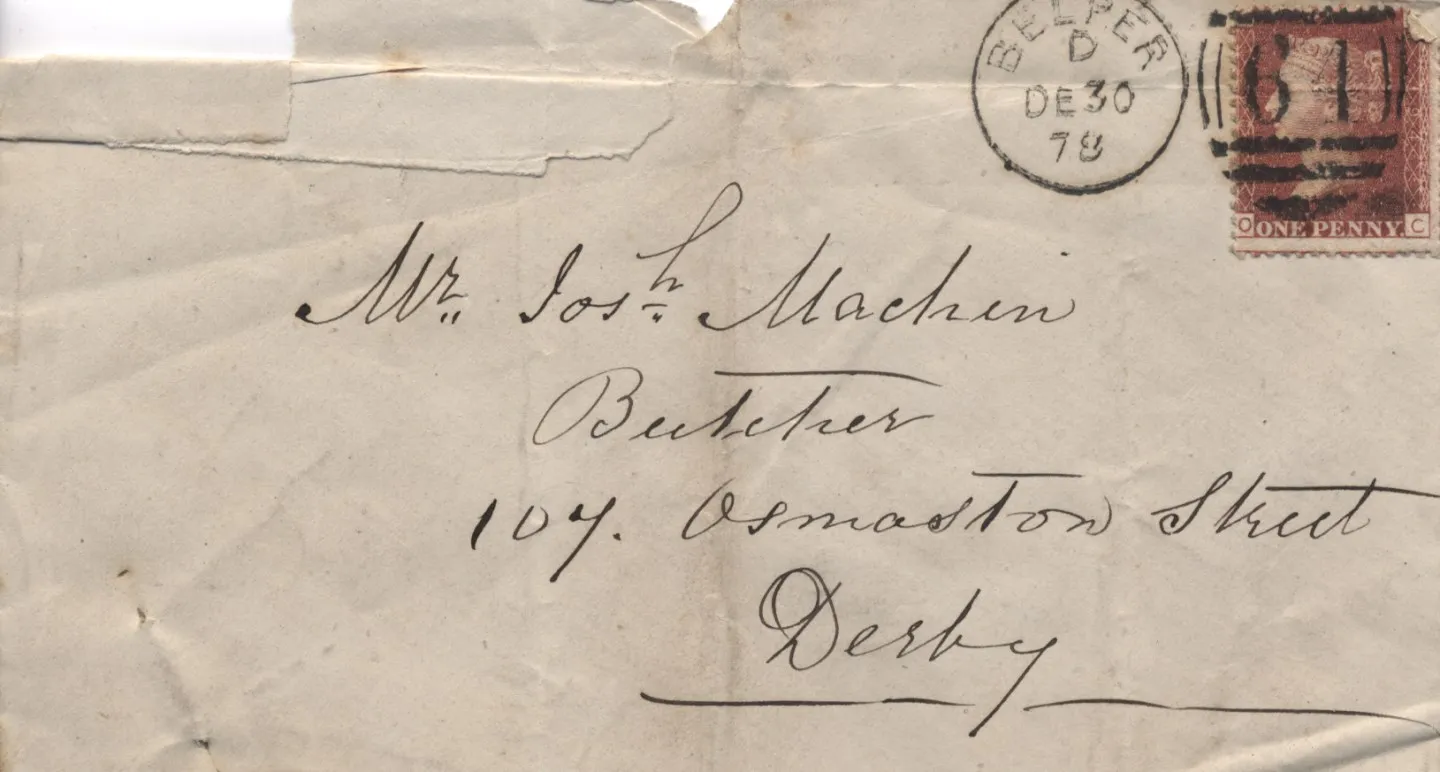 BELPER
D
DE 30
78
61
O ONE PENNY. C
Mr. Josh. Machin
Butcher
107. Osmaston Street
Derby